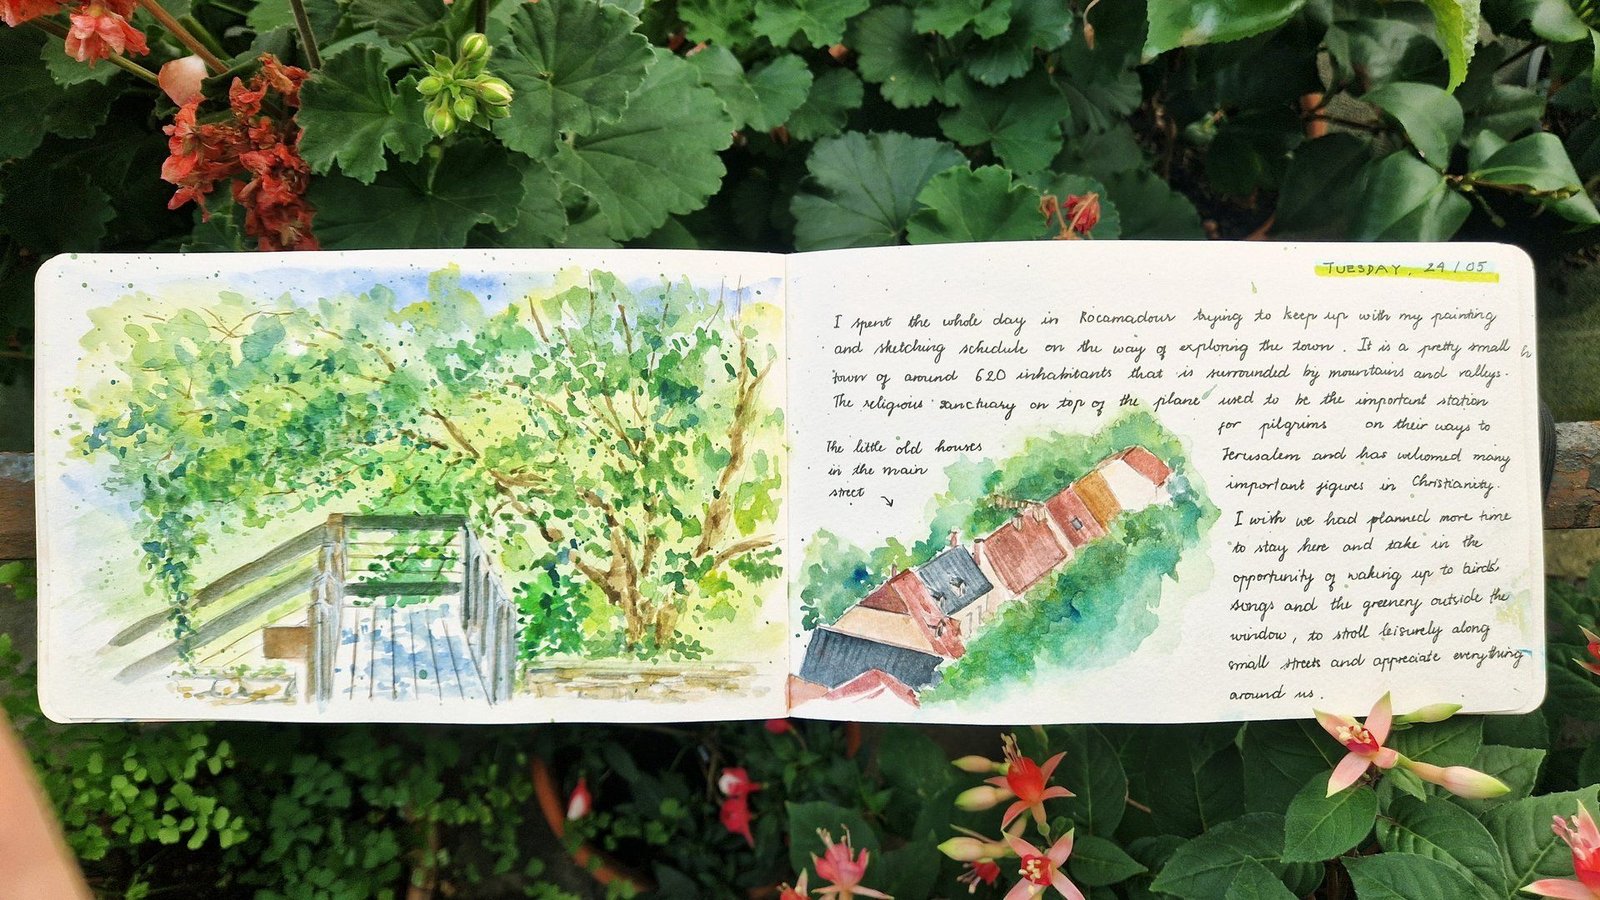 TUESDAY, 24/05
I spent the whole day in Rocamadour trying to keep up with my painting
and sketching schedule on the way of exploring the town. It is a pretty small
town of around 620 inhabitants that is surrounded by mountains and valleys.
The religious sanctuary on top of the plane used to be the important station
for pilgrims on their ways to
Jerusalem and has welcomed many
important figures in Christianity.
The little old houses
in the main
street
I wish we had planned more time
to stay here and take in the
opportunity of waking up to birds'
songs and the greenery outside the
window, to stroll leisurely along
small streets and appreciate everything
around us.